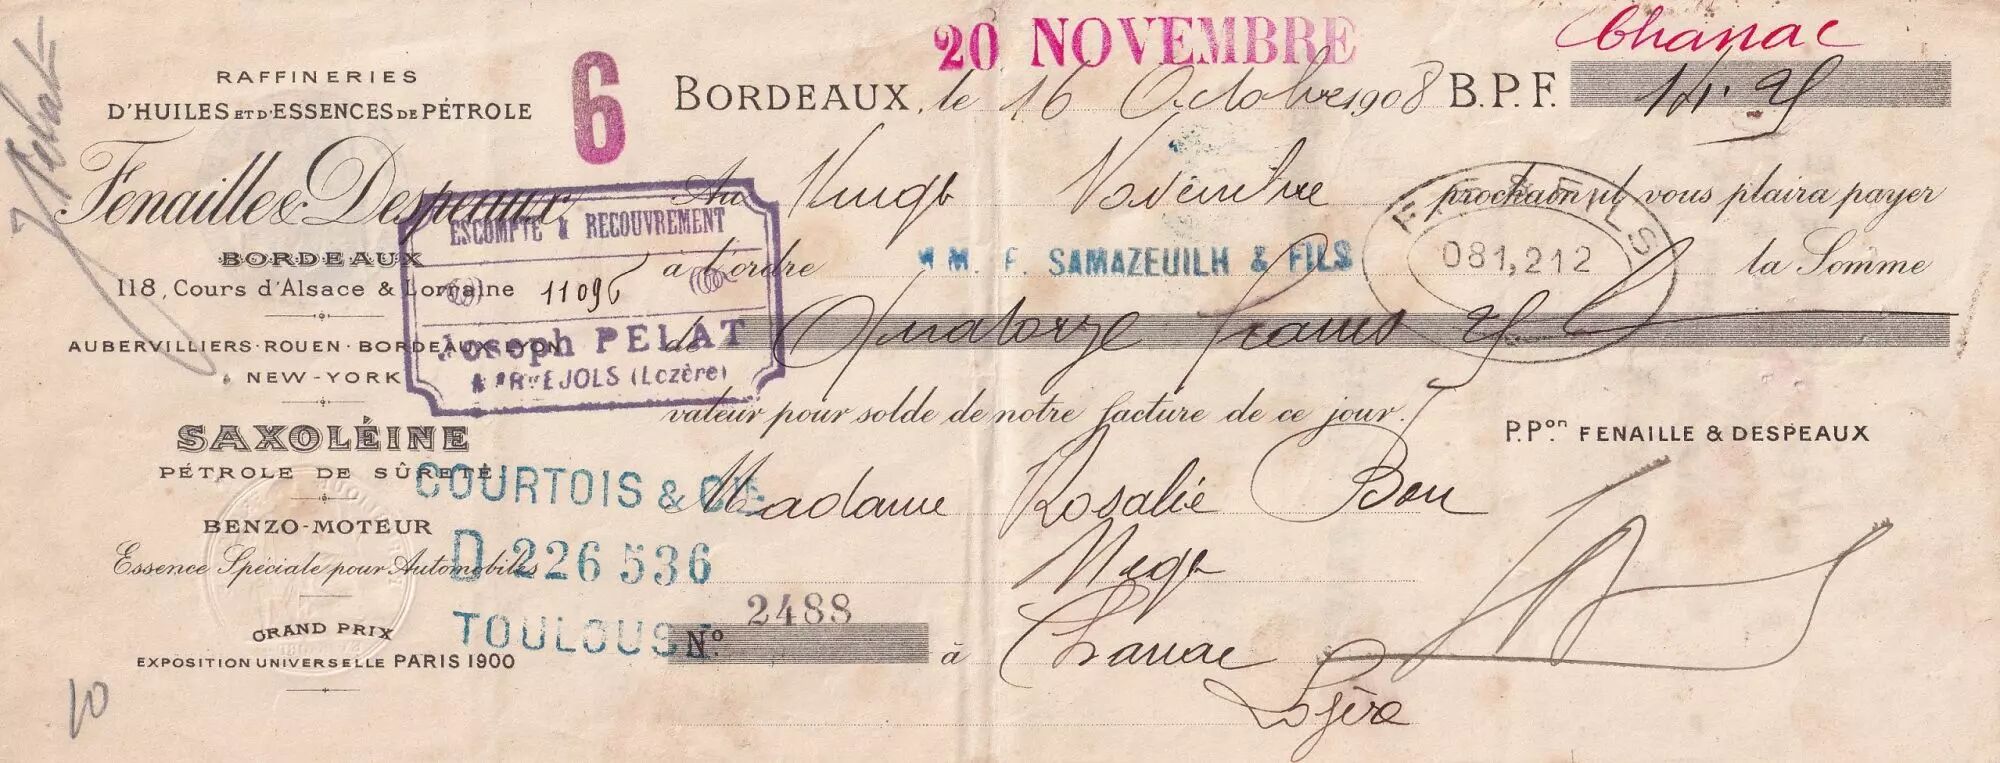 20 NOVEMBRE
Chanac
J Pelat
RAFFINERIES
D'HUILES ET D'ESSENCES DE PÉTROLE
6
BORDEAUX, le 16 Octobre 1908 B.P.F. 14.25
Fenaille & Despeaux
Au Vingt Novembre prochain il vous plaira payer
BORDEAUX
118, Cours d'Alsace & Lorraine
ESCOMPTE & RECOUVREMENT
11096
Joseph PELAT
MARVEJOLS (Lozère)
à l'ordre MM. F. SAMAZEUILH & FILS la Somme
F. S. & FILS
081,212
AUBERVILLIERS-ROUEN-BORDEAUX-LYON
NEW-YORK
de Quatorze francs 25
valeur pour solde de notre facture de ce jour.
P.Pon FENAILLE & DESPEAUX
SAXOLÉINE
PÉTROLE DE SÛRETÉ
COURTOIS & CIE
D 226 536
TOULOUSE
Madame Rosalie Bon
Negt
BENZO-MOTEUR
Essence Spéciale pour Automobiles
GRAND PRIX
EXPOSITION UNIVERSELLE PARIS 1900
No. 2488
à Chanac
Lozère
10